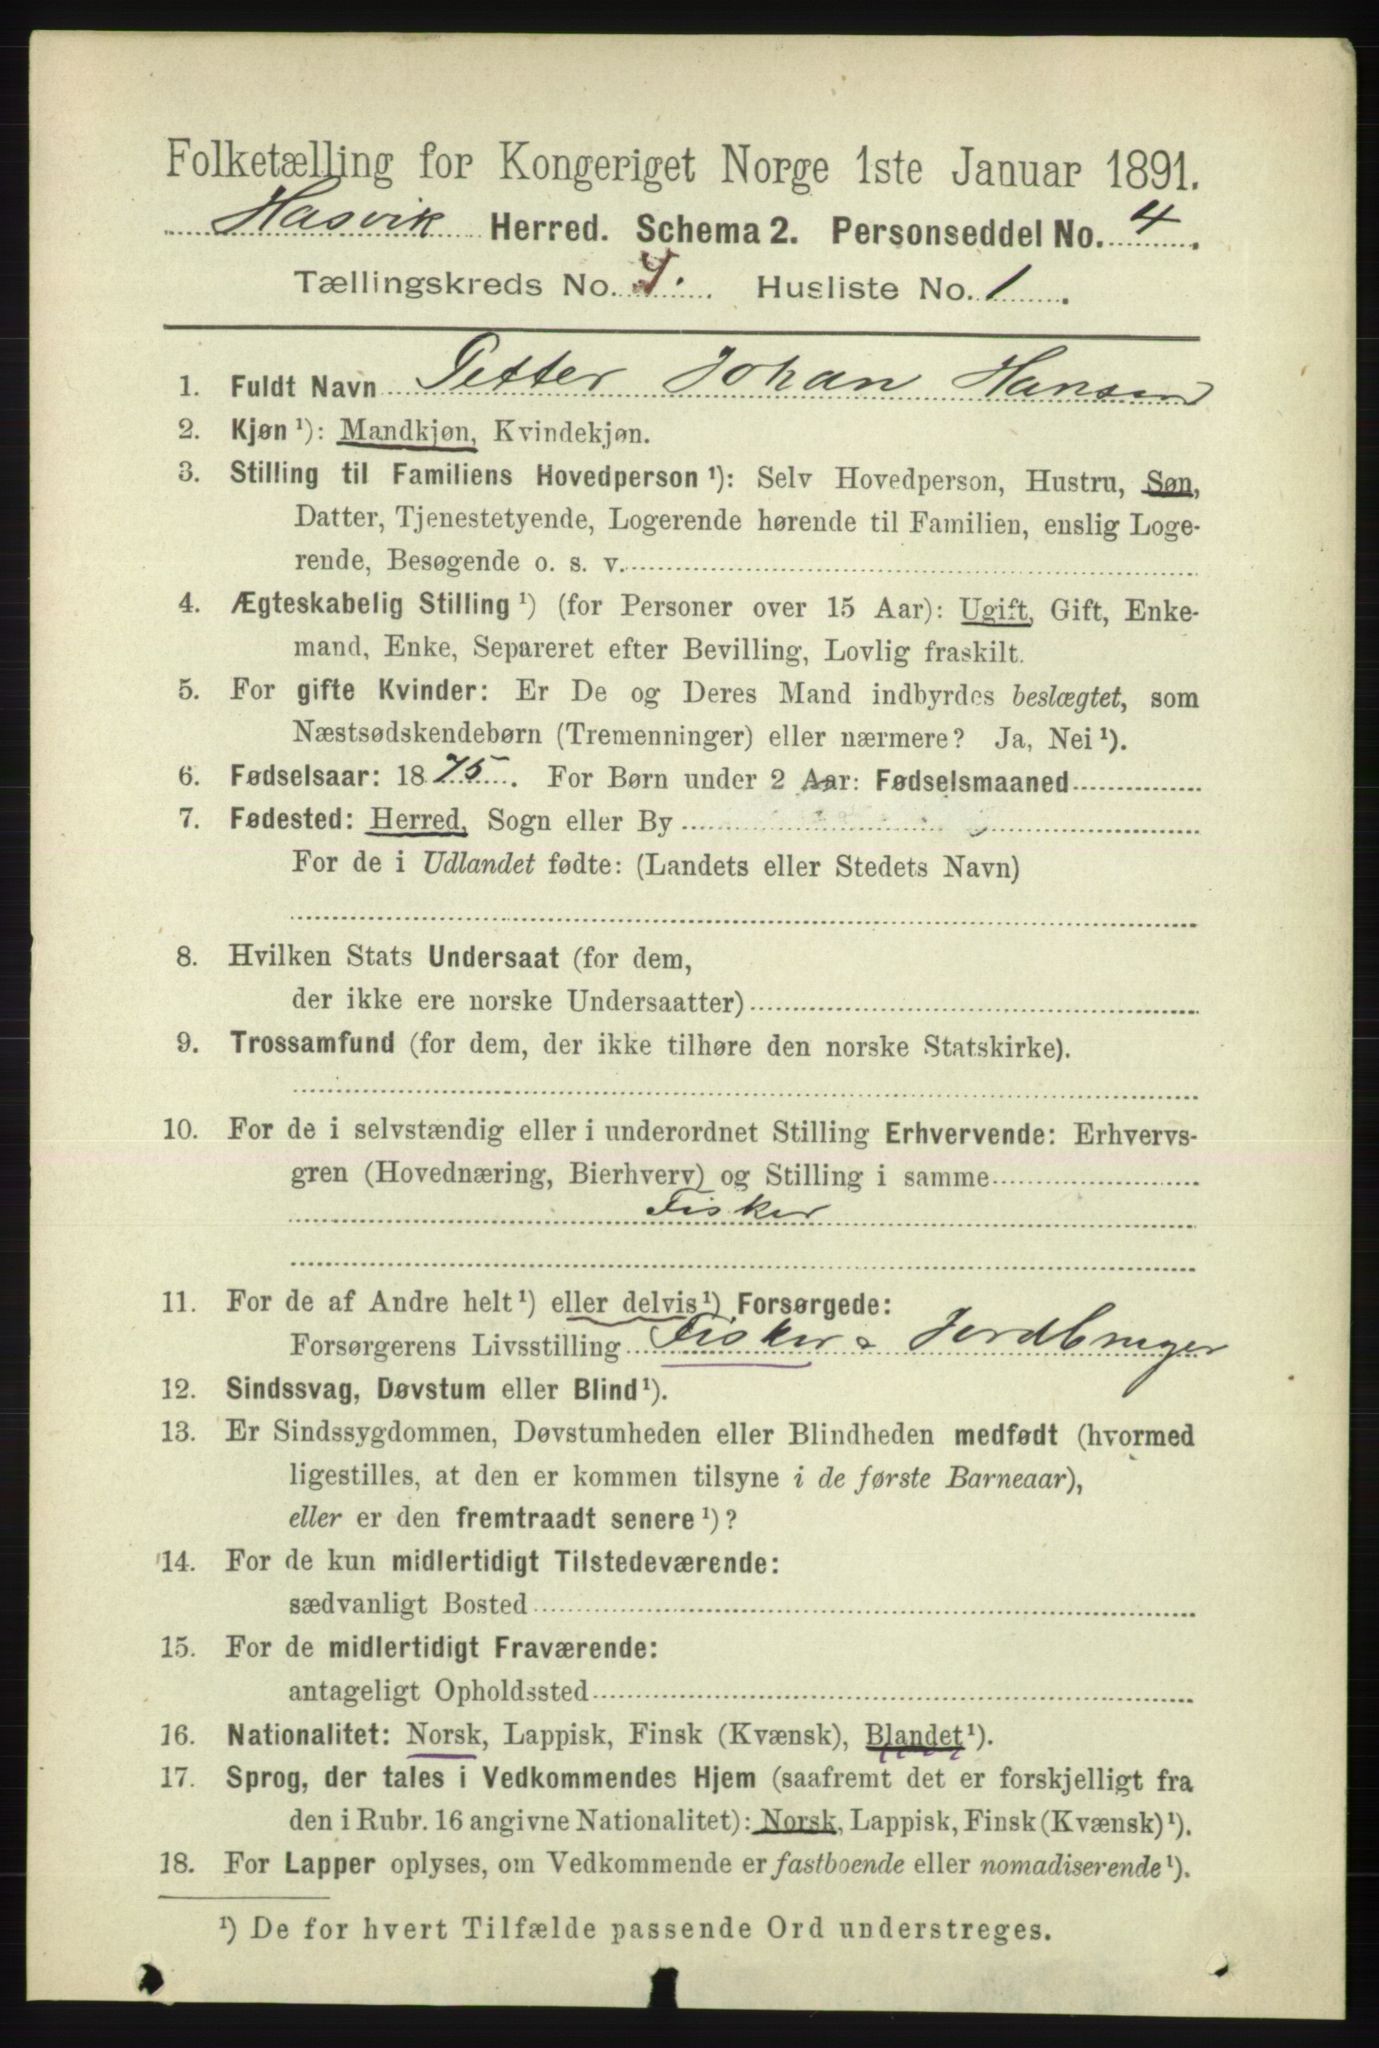 Folketælling for Kongeriget Norge 1ste Januar 1891.
Hasvik Herred. Schema 2. Personseddel No. 4.
Tællingskreds No. Husliste No. 1.
1. Fuldt Navn Petter Johan Hansen
2. Kjøn ¹): Mandkjøn, Kvindekjøn.
3. Stilling til Familiens Hovedperson ¹): Selv Hovedperson, Hustru, Søn,
Datter, Tjenestetyende, Logerende hørende til Familien, enslig Loge-
rende, Besøgende o. s. v.
4. Ægteskabelig Stilling ¹) (for Personer over 15 Aar): Ugift, Gift, Enke-
mand, Enke, Separeret efter Bevilling, Lovlig fraskilt.
5. For gifte Kvinder: Er De og Deres Mand indbyrdes beslægtet, som
Næstsødskendebørn (Tremenninger) eller nærmere? Ja, Nei ¹).
6. Fødselsaar: 1875. For Børn under 2 Aar: Fødselsmaaned
7. Fødested: Herred, Sogn eller By
For de i Udlandet fødte: (Landets eller Stedets Navn)
8. Hvilken Stats Undersaat (for dem,
der ikke ere norske Undersaatter)
9. Trossamfund (for dem, der ikke tilhøre den norske Statskirke).
10. For de i selvstændig eller i underordnet Stilling Erhvervende: Erhvervs-
gren (Hovednæring, Bierhverv) og Stilling i samme
Fisker
11. For de af Andre helt ¹) eller delvis ¹) Forsørgede:
Forsørgerens Livsstilling Fisker & Jordbruger
12. Sindssvag, Døvstum eller Blind ¹).
13. Er Sindssygdommen, Døvstumheden eller Blindheden medfødt (hvormed
ligestilles, at den er kommen tilsyne i de første Barneaar),
eller er den fremtraadt senere ¹)?
14. For de kun midlertidigt Tilstedeværende:
sædvanligt Bosted
15. For de midlertidigt Fraværende:
antageligt Opholdssted
16. Nationalitet: Norsk, Lappisk, Finsk (Kvænsk), Blandet ¹).
17. Sprog, der tales i Vedkommendes Hjem (saafremt det er forskjelligt fra
den i Rubr. 16 angivne Nationalitet): Norsk, Lappisk, Finsk (Kvænsk) ¹).
18. For Lapper oplyses, om Vedkommende er fastboende eller nomadiserende ¹).
¹) De for hvert Tilfælde passende Ord understreges.